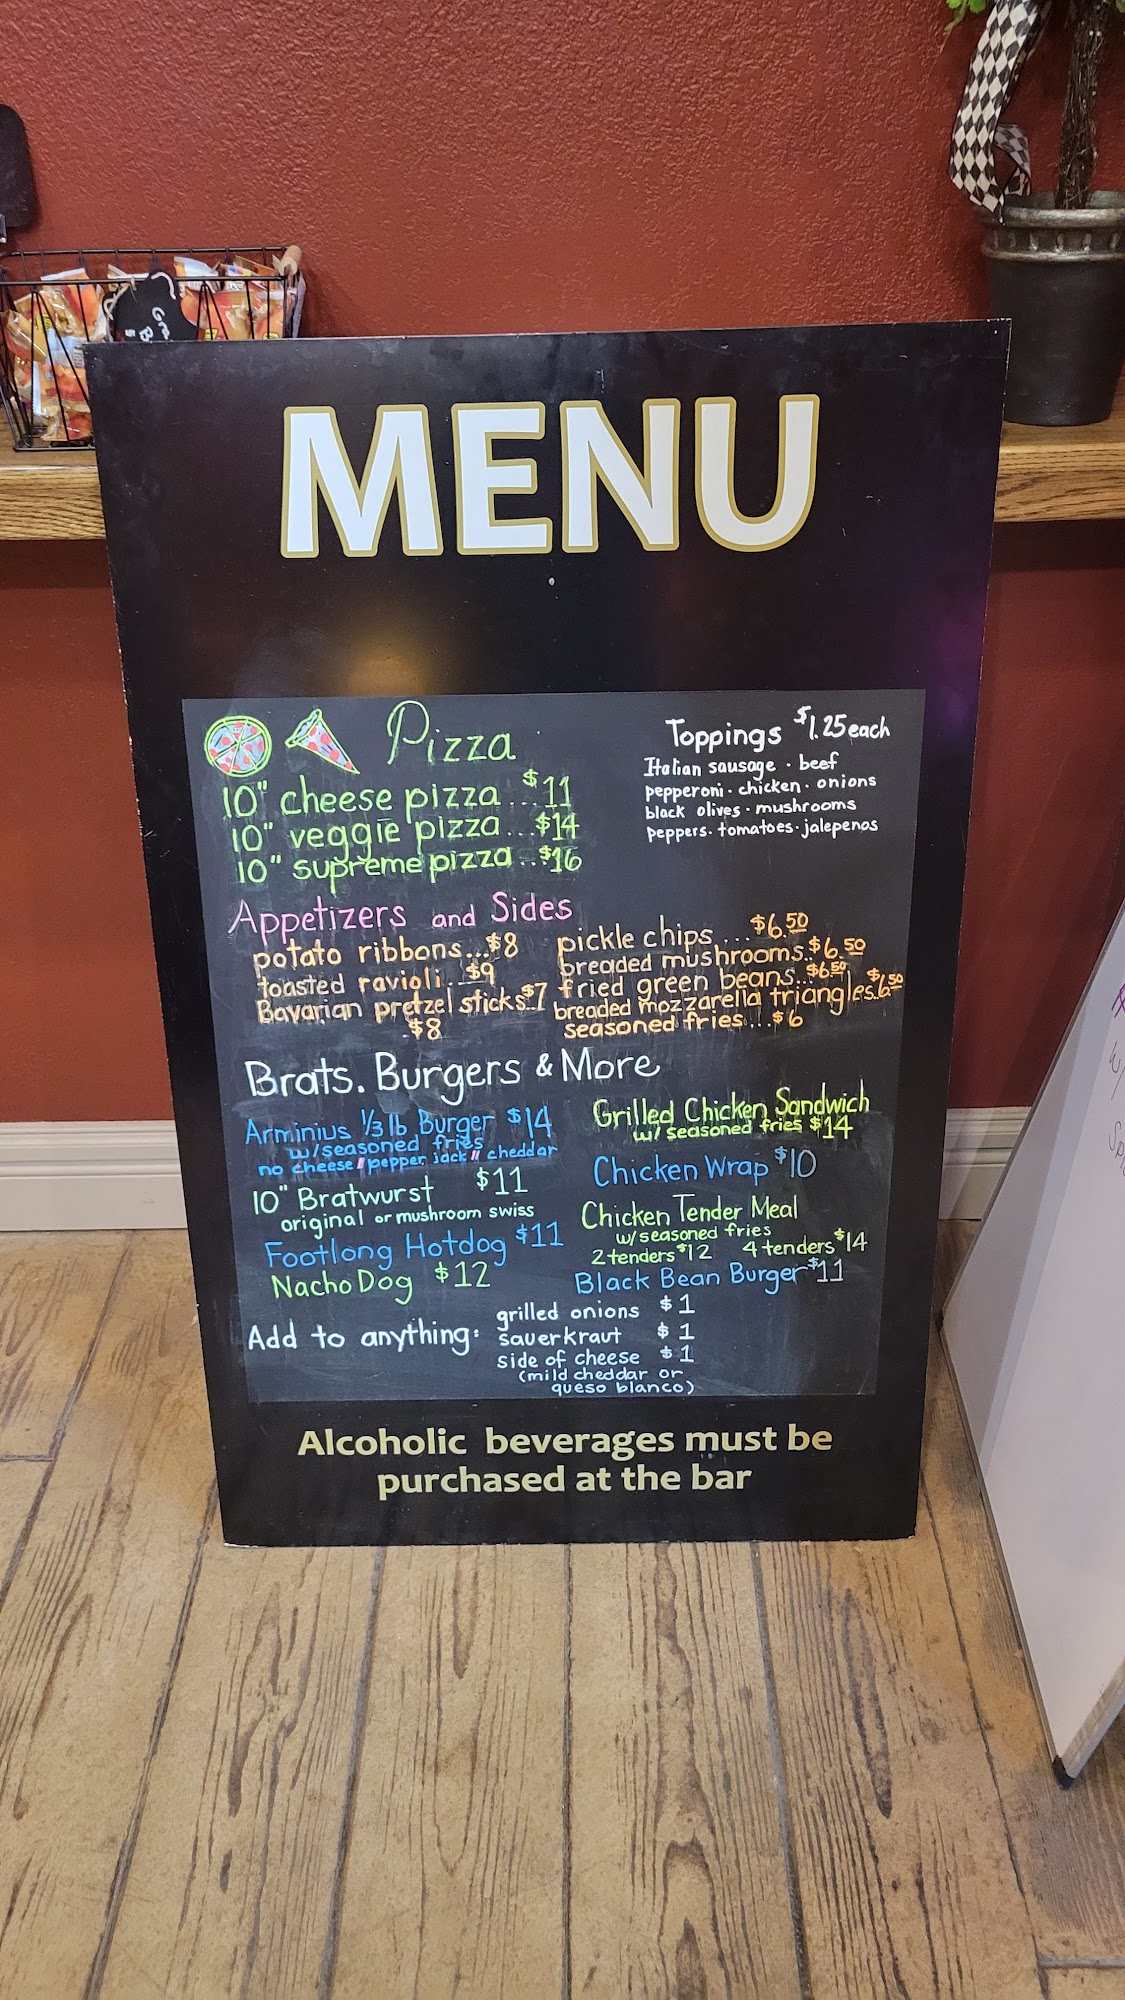 MENU
Pizza
10" cheese pizza...$11
10" veggie pizza...$14
10" supreme pizza...$16
Toppings $1.25 each
Italian sausage · beef
pepperoni · chicken · onions
black olives · mushrooms
peppers · tomatoes · jalepenos
Appetizers and Sides
potato ribbons...$8
toasted ravioli...$9
Bavarian pretzel sticks..$7
$8
pickle chips....$6.50
breaded mushrooms..$6.50
fried green beans...$6.50
breaded mozzarella triangles.$6.50
seasoned fries...$6
Brats. Burgers & More
Arminius 1/3 lb Burger $14
w/seasoned fries
no cheese/pepper jack/cheddar
10" Bratwurst $11
original or mushroom swiss
Footlong Hotdog $11
Nacho Dog $12
Grilled Chicken Sandwich
w/ seasoned fries $14
Chicken Wrap $10
Chicken Tender Meal
w/seasoned fries
2 tenders $12 4 tenders $14
Black Bean Burger $11
Add to anything:
grilled onions $1
sauerkraut $1
side of cheese $1
(mild cheddar or
queso blanco)
Alcoholic beverages must be
purchased at the bar